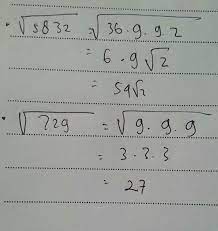 • √5832 = √36.9.9.2
= 6.9√2
= 54√2
• √729 = √9.9.9
= 3.3.3
= 27